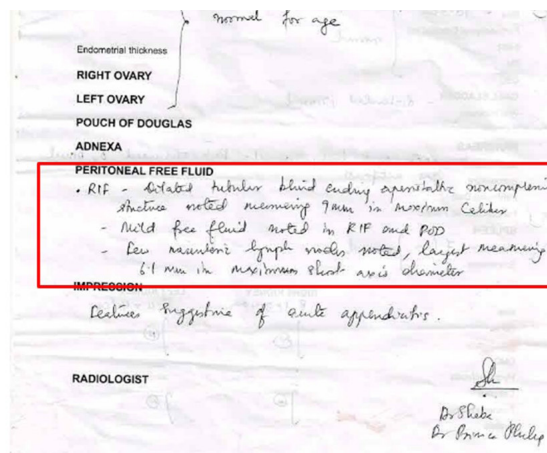 normal for age
Endometrial thickness
RIGHT OVARY
LEFT OVARY
POUCH OF DOUGLAS
ADNEXA
PERITONEAL FREE FLUID
• RIF - Dilated tubular blind ending aperistaltic
structure noted measuring 9mm in maximum Caliber
- Mild free fluid noted in RIF and POD
- Few lymph nodes noted, largest measuring
6.1 mm in maximum short axis diameter
IMPRESSION
Features suggestive of acute appendicitis.
RADIOLOGIST
Dr Sheba
Dr Prince Philip